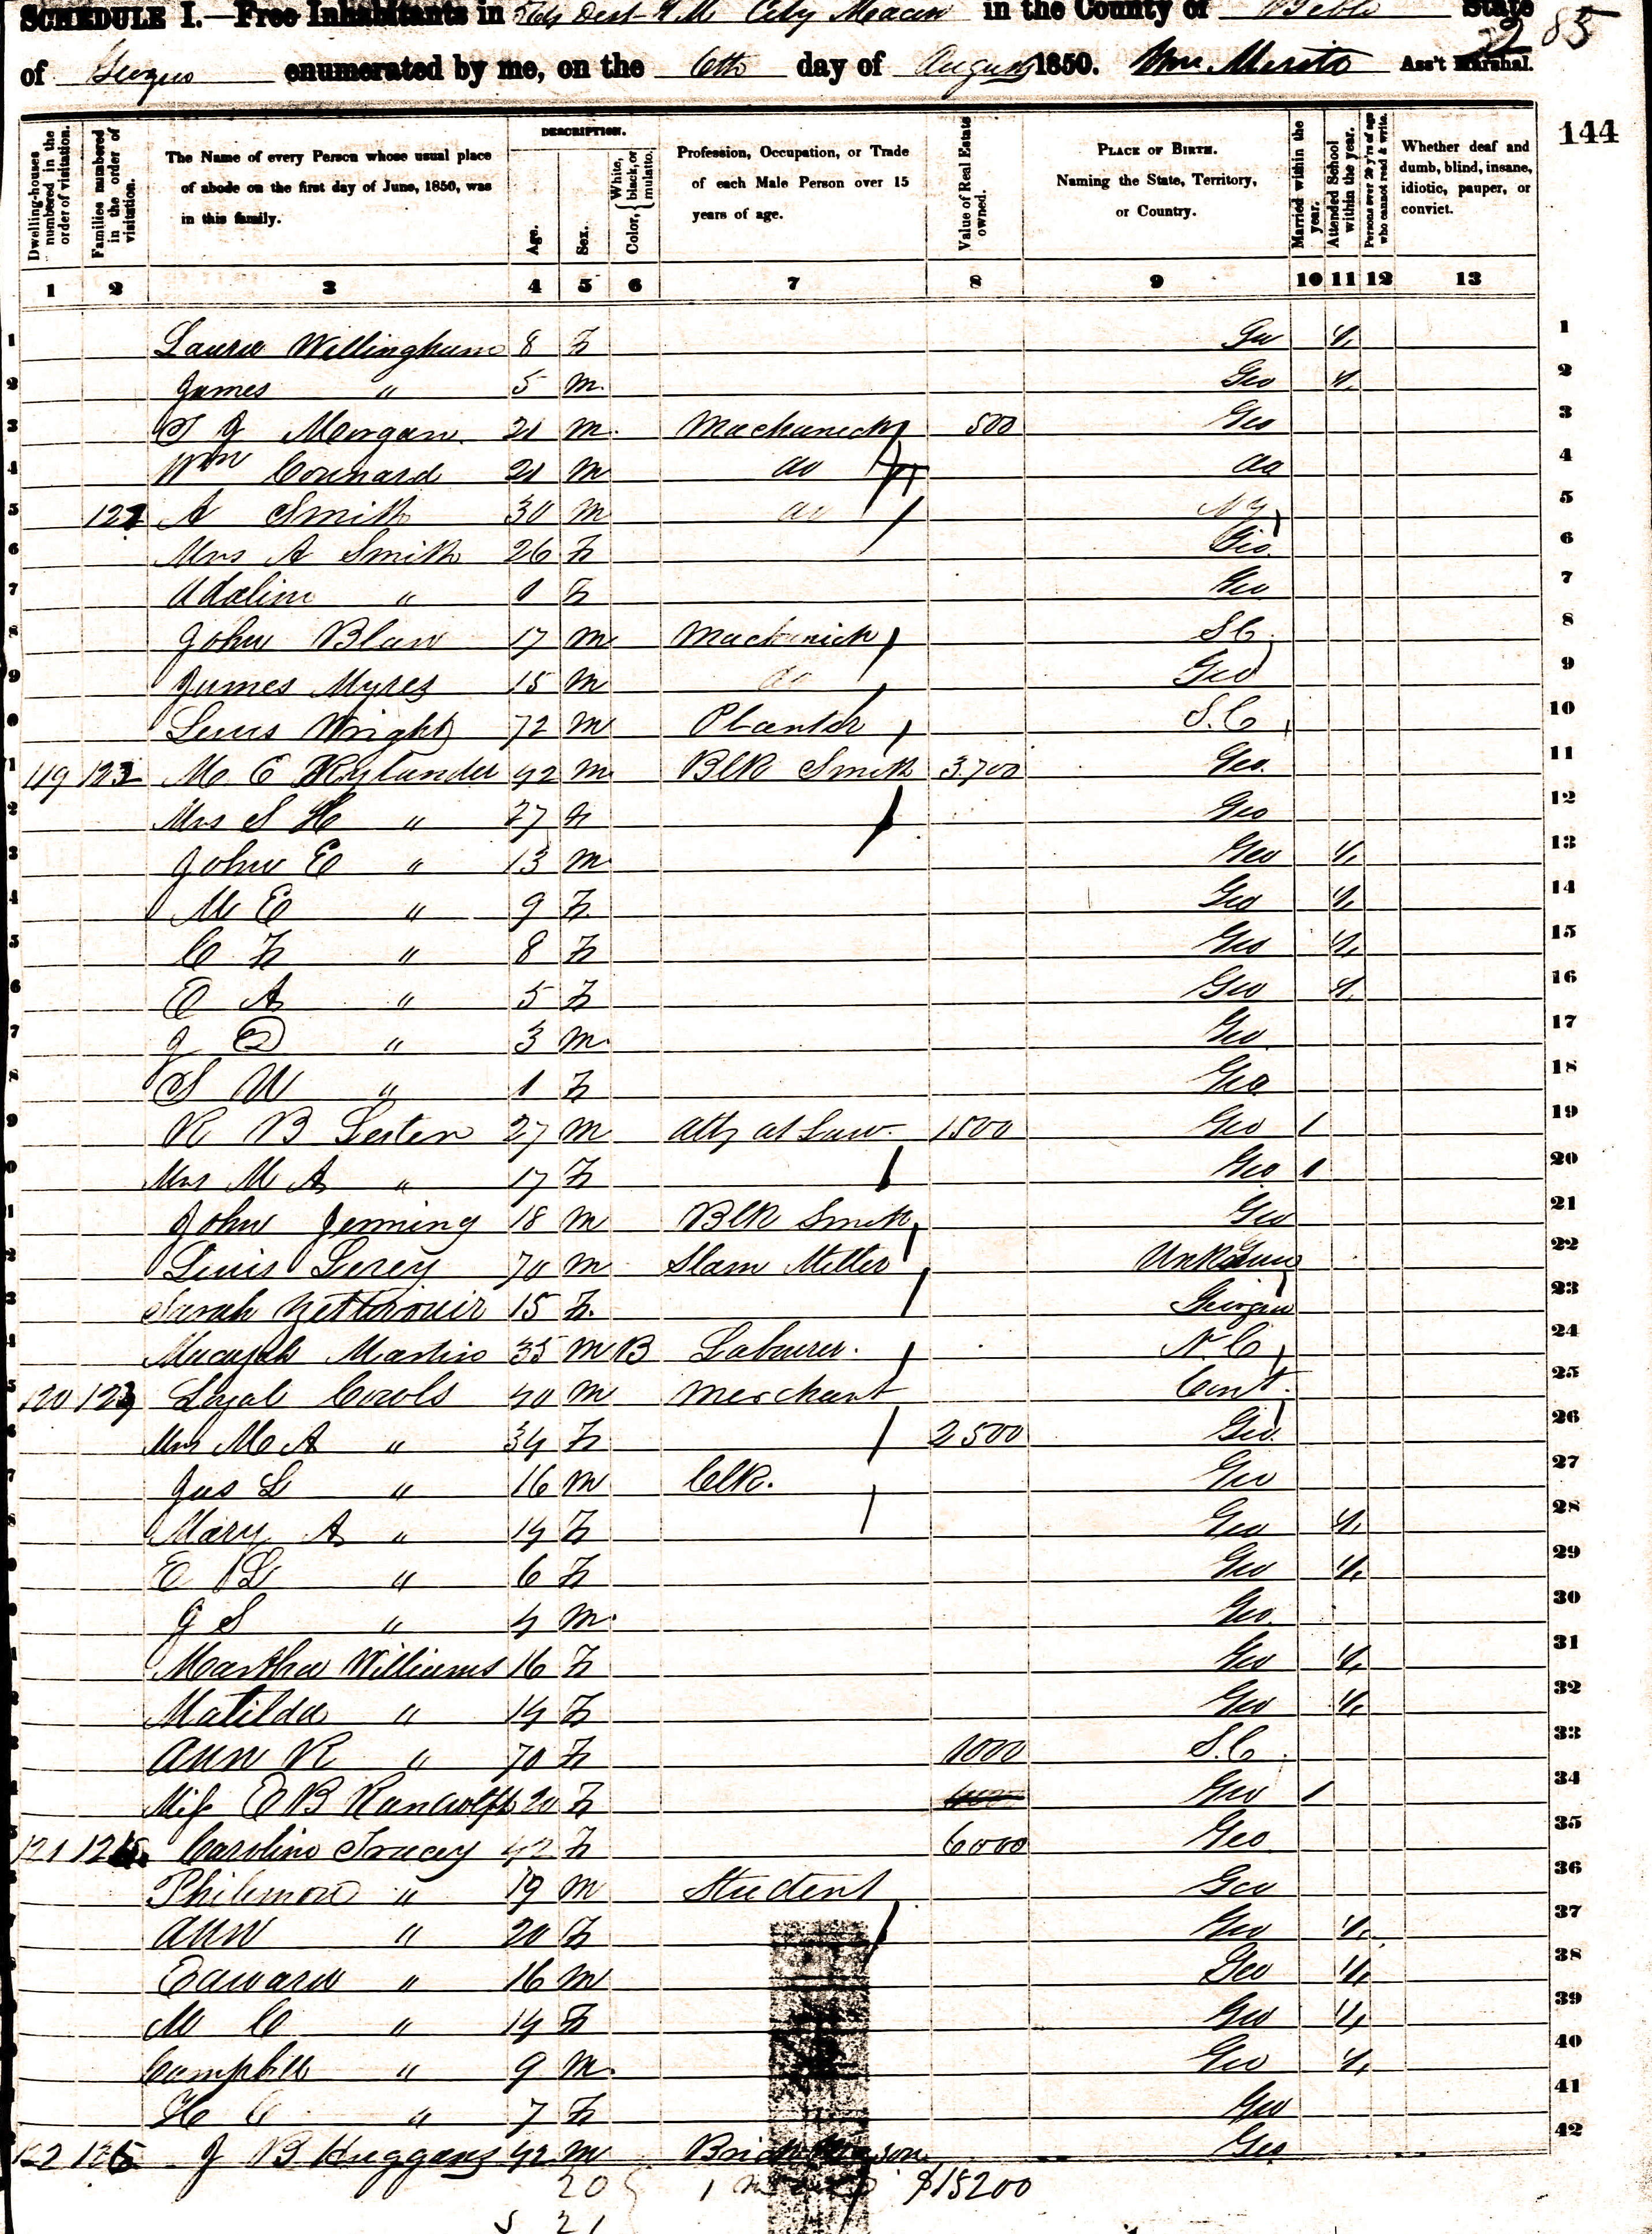 SCHEDULE I.—Free Inhabitants in City Macon in the County of Bibb State
85
of Georgia enumerated by me, on the 6th day of August 1850. Wm Ass't Marshal.
144
DESCRIPTION.
Dwelling-houses numbered in the order of visitation.
Families numbered in the order of visitation.
The Name of every Person whose usual place of abode on the first day of June, 1850, was in this family.
Age.
Sex.
Color, { White, black, or mulatto.
Profession, Occupation, or Trade of each Male Person over 15 years of age.
Value of Real Estate owned.
PLACE OF BIRTH. Naming the State, Territory, or Country.
Married within the year.
Attended School within the year.
Persons over 20 y'rs of age who cannot read & write.
Whether deaf and dumb, blind, insane, idiotic, pauper, or convict.
1 2 3 4 5 6 7 8 9 10 11 12 13
1 Laura Willingham 8 F Geo 1
2 James " 5 m Geo 1
3 J Morgan 21 m Machanick 500 Geo
4 Wm Counard 21 m do do
5 A Smith 30 m do NY
6 Mrs A Smith 26 F Geo
7 Adaline " 1 F Geo
8 John Blaw 17 m Machinick S C
9 James Myres 15 m do Geo
10 Lewis Wright 72 m Planter S. C
11 119 M C Rylander 42 m Blk Smith 3700 Geo
12 Mrs S H " 27 F Geo
13 John E " 13 m Geo 1
14 M E " 9 F Geo 1
15 C F " 8 F Geo 1
16 E A " 5 F Geo 1
17 J " 3 m Geo
18 S W " 1 F Geo
19 R B Lester 27 m Atty at Law 1500 Geo 1
20 Mrs M A " 17 F Geo 1
21 John Jenning 18 m Blk Smith Geo
22 Lewis 70 m Miller Unknown
23 Sarah 15 F Georgia
24 Macajah Martin 35 m B Labourer N. C
25 120 Loyal 40 m Merchant Cont
26 Mrs M A " 34 F 2500 Geo
27 Jas L " 16 m Clk. Geo
28 Mary A " 14 F Geo 1
29 E L " 6 F Geo 1
30 J S " 4 m Geo
31 Martha Williams 16 F Geo 1
32 Matilda " 14 F Geo 1
33 Ann R " 70 F 1000 S. C
34 Miss E B Randolph 20 F Geo 1
35 121 Caroline Tracey 42 F 6000 Geo
36 Philemon " 19 m Student Geo
37 Ann " 20 F Geo 1
38 Edward " 16 m Geo 1
39 M C " 14 F Geo 1
40 Campbell " 9 m Geo 1
41 H C " 7 F Geo
42 122 J B Huggans 42 m Brick Mason Geo
20 1 $15200
21